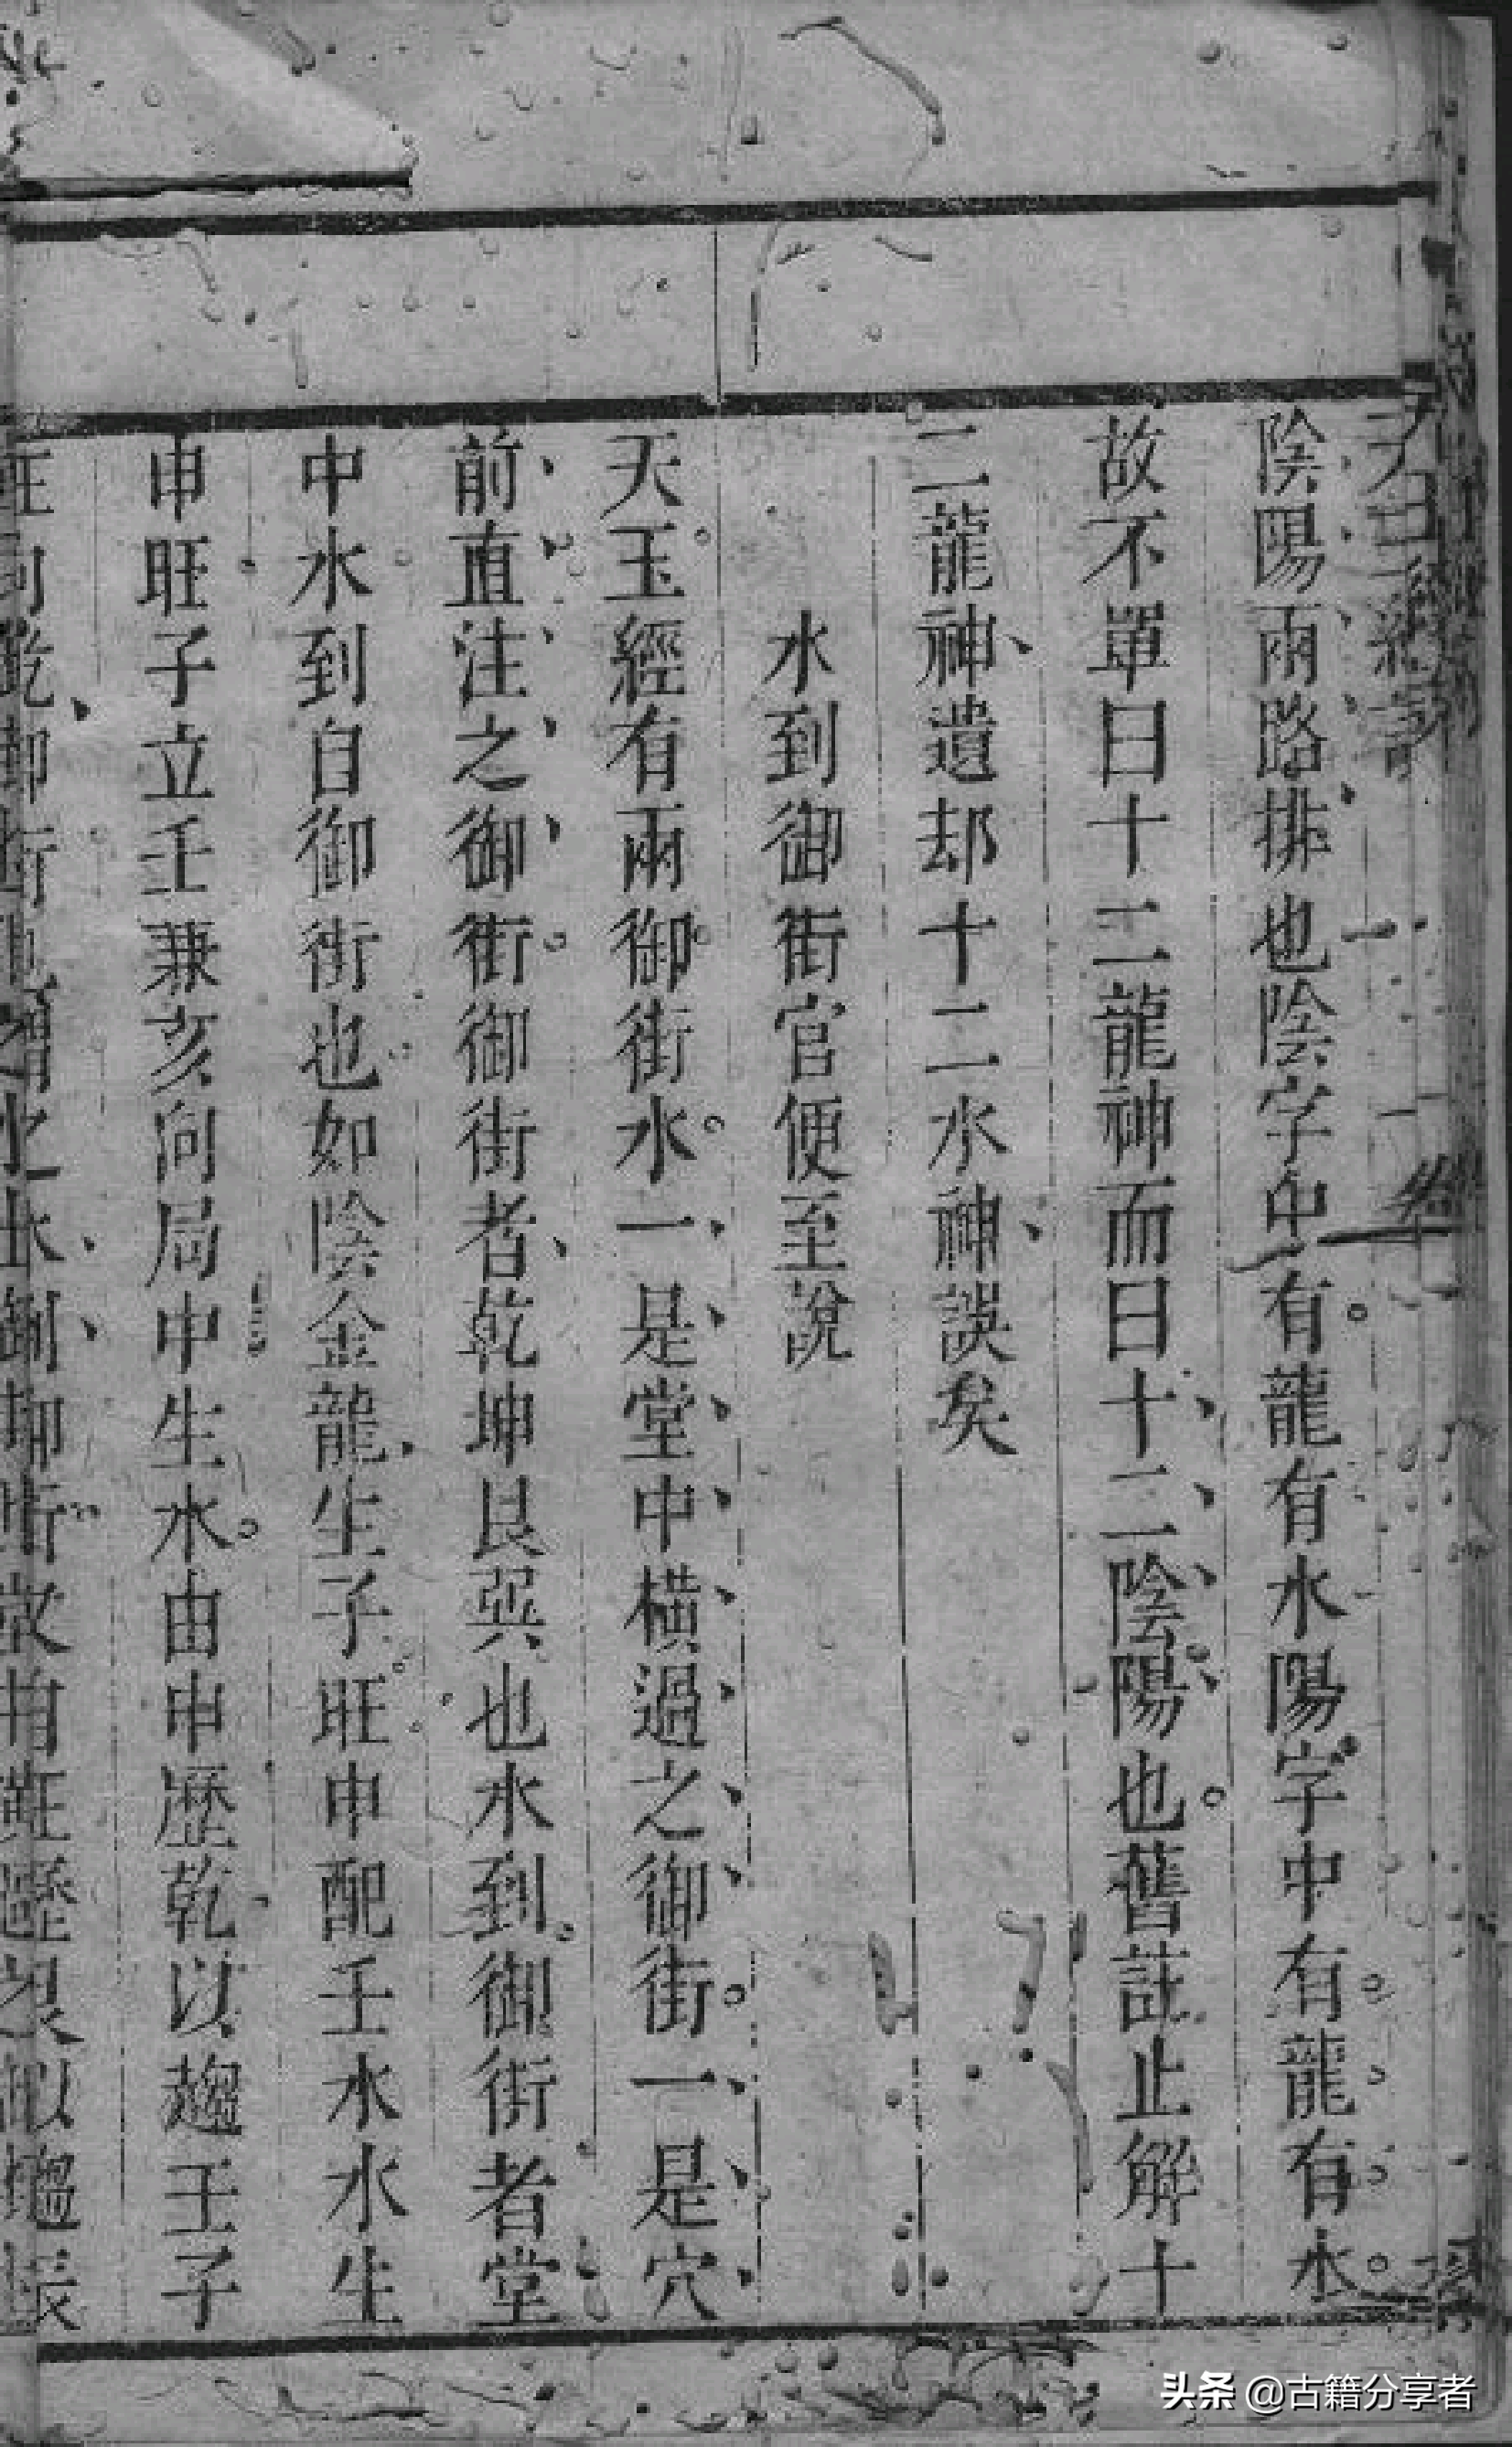 陰陽兩路排也陰字中有龍有水陽字中有龍有水
故不單曰十二龍神而曰十二陰陽也舊註止解十
二龍神遺却十二水神誤矣
水到御街官便至說
天玉經有兩御街水一是堂中橫過之御街一是穴
前直注之御街御街者乾坤艮巽也水到御街者堂
中水到自御街也如陰金龍生子旺申配壬水水生
申旺子立壬兼亥向局中生水由申歷乾以趨壬子
头条 @古籍分享者